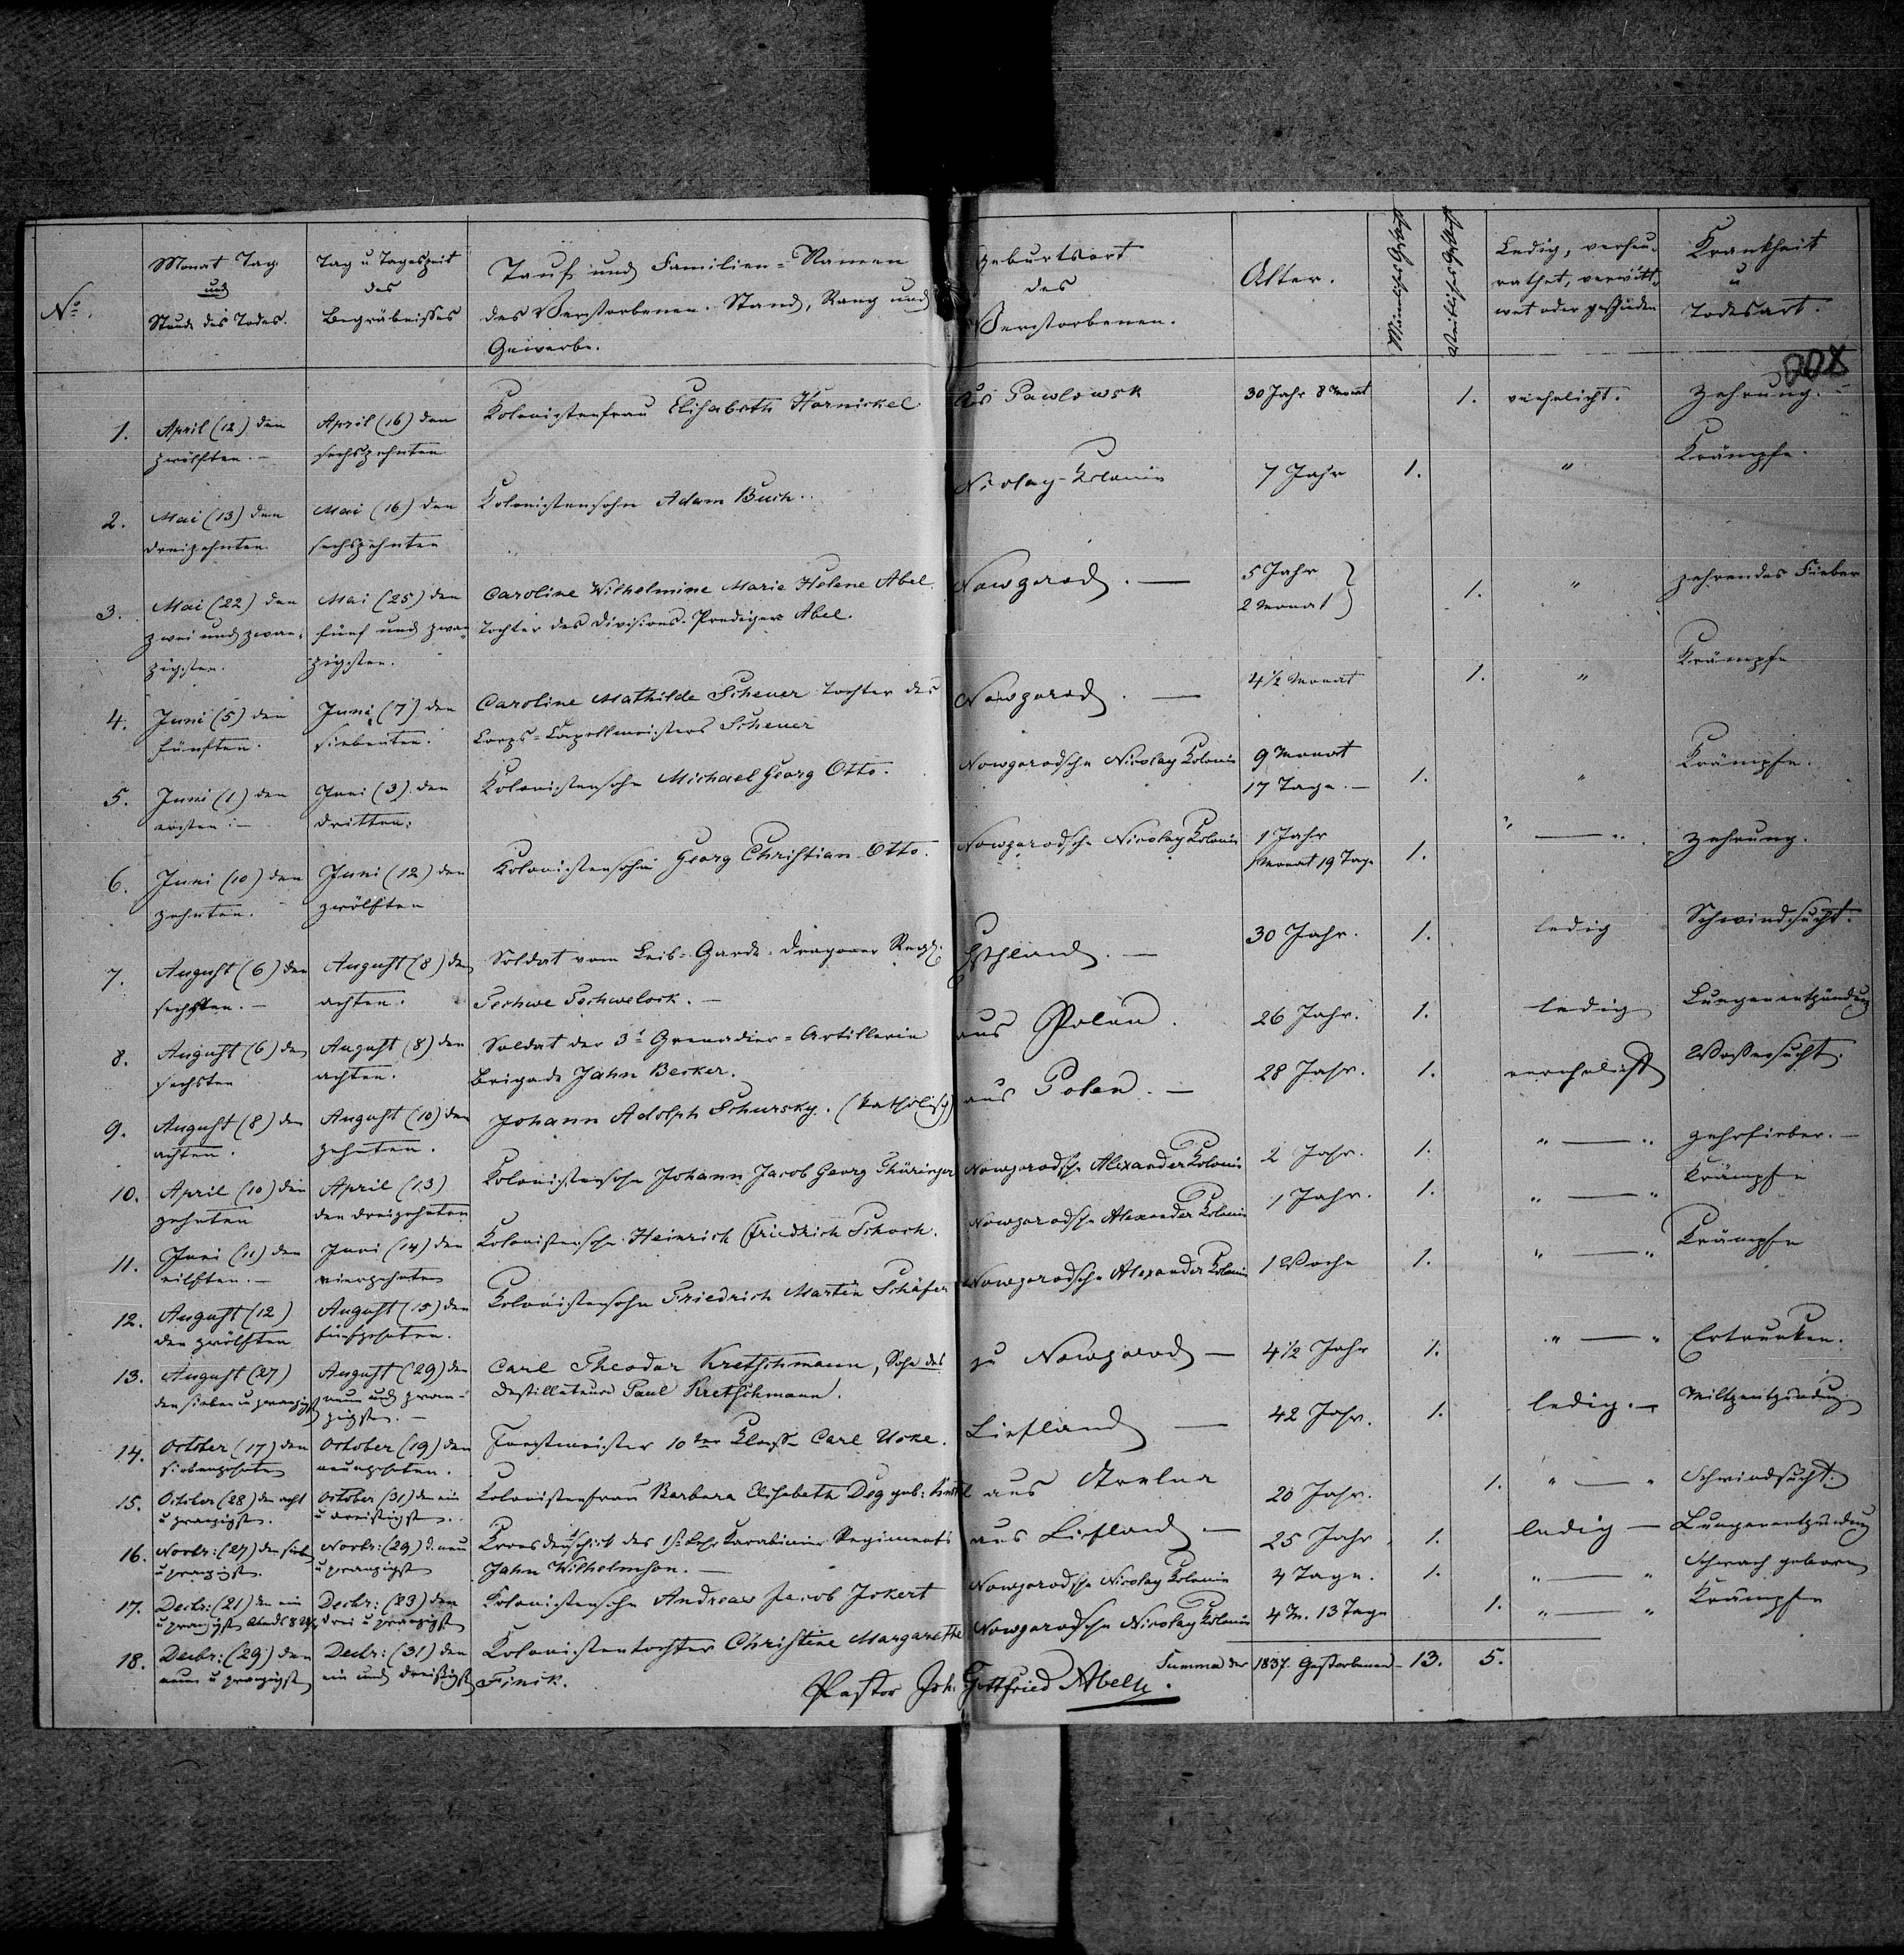 No.
Monat Tag
und
Stunde des Todes.
Tag u Tageszeit
des
Begräbnisses
Tauf und Familien-Namen
des Verstorbenen. Stand, Rang und
Gewerbe.
Geburtsort
des
Verstorbenen.
Alter.
Männliches Geschl.
Weibliches Geschl.
Ledig, verheu-
rathet, verwitt-
wet oder geschieden
Krankheit
u
Todesart.
208
1.
April (12) den
zwölften.
April (16) den
sechszehnten
Kolonistenfrau Elisabeth Hornickel
Aus Pawlowsk
30 Jahr 8 Monat
1.
verehelicht.
Zehrung.
2.
Mai (13) den
dreizehnten
Mai (16) den
sechszehnten
Kolonistensohn Adam Buch.
Nicolay-Kolonie
7 Jahr
1.
"
Krämpfe.
3.
Mai (22) den
zwei und zwan-
zigsten.
Mai (25) den
fünf und zwan-
zigsten.
Caroline Wilhelmine Marie Helene Abel
Tochter des Divisions-Predigers Abel.
Nowgorod. —
5 Jahr
2 Monat }
1.
"
zehrendes Fieber
4.
Juni (5) den
fünften.
Juni (7) den
siebenten.
Caroline Mathilde Scheuer Tochter des
Corps-Capellmeisters Scheuer
Nowgorod. —
4 1/2 Monat
1.
"
Krämpfe
5.
Juni (1) den
ersten. —
Juni (3) den
dritten.
Kolonistensohn Michael Georg Otto.
Nowgorodsche Nicolay Kolonie
9 Monat
17 Tage. —
1.
"
Krämpfe.
6.
Juni (10) den
zehnten.
Juni (12) den
zwölften
Kolonistensohn Georg Christian Otto.
Nowgorodsche Nicolay Kolonie
1 Jahr
Monat 19 Tage
1.
" — "
Zehrung.
7.
August (6) den
sechsten. —
August (8) den
achten.
Soldat vom Leib-Garde-Dragoner Regt.
Techwe Techwelock. —
Ehstland. —
30 Jahr.
1.
ledig
Schwindsucht.
8.
August (6) den
sechsten
August (8) den
achten.
Soldat der 3t Grenadier-Artillerie
Brigade Jahn Becker.
aus Polen.
26 Jahr.
1.
ledig
Lungenentzündung
9.
August (8) den
achten.
August (10) den
zehnten.
Johann Adolph Schursky. (katholisch)
aus Polen. —
28 Jahr.
1.
verehelicht
Wassersucht.
10.
April (10) den
zehnten
April (13)
den dreizehnten
Kolonistensohn Johann Jacob Georg Thüringer
Nowgorodsche Alexander Kolonie
2 Jahr.
1.
" — "
Zehrfieber. —
11.
Juni (11) den
eilften. —
Juni (14) den
vierzehnten
Kolonistensohn Heinrich Friedrich Schoch.
Nowgorodsche Alexander Kolonie
1 Jahr.
1.
" — "
Krämpfe
12.
August (12)
den zwölften
August (15) den
fünfzehnten.
Kolonistensohn Friedrich Martin Schäfer
Nowgorodsche Alexander Kolonie
1 Woche
1.
" — "
Krämpfe
13.
August (27)
den sieben u zwanzigst
August (29) den
neun und zwan-
zigsten. —
Carl Theodor Kretschmann, Sohn des
Destillateurs Paul Kretschmann.
zu Nowgorod —
4 1/2 Jahr
1.
" — "
Ertrunken.
14.
October (17) den
siebenzehnten
October (19) den
neunzehnten.
Forstmeister 10ter Klasse Carl Uske.
Liefland —
42 Jahr.
1.
ledig. —
Miltzentzündung
15.
October (28) den acht
u zwanzigsten.
October (31) den ein
u dreißigsten.
Kolonistenfrau Barbara Elisabeth Deg geb:
aus Strelna
20 Jahr.
1.
" — "
Schwindsucht.
16.
Novbr: (27) den sieb
u zwanzigsten.
Novbr: (29) d. neun
u zwanzigsten
des 1st Karabinier Regiments
Jahn Wilhelmson. —
aus Liefland —
25 Jahr
1.
ledig —
Lungenentzündung
17.
Decbr: (21) den ein
u zwanzigsten Abends 8 Uhr
Decbr: (23) den
drei u zwanzigsten
Kolonistensohn Andreas Jacob Jckert
Nowgorodsche Nicolay Kolonie
4 Tage.
1.
" — "
Schwach geboren
18.
Decbr: (29) den
neun u zwanzigst
Decbr: (31) den
ein und dreißigst
Kolonistentochter Christine Margarethe
Finik.
Nowgorodsche Nicolay Kolonie
4 M. 13 Tage
1.
" — "
Krämpfe
Summa der 1837. Gestorbenen — 13. 5.
Pastor Joh. Gottfried Abell.